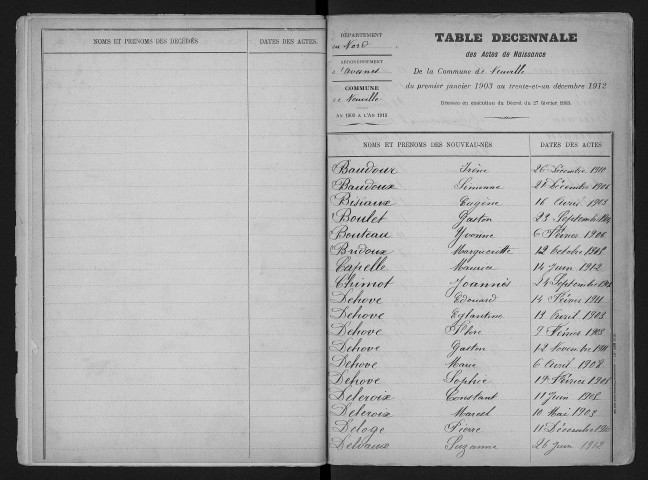 NOMS ET PRENOMS DES DÉCÉDÉS DATES DES ACTES
DÉPARTEMENT
du Nord
ARRONDISSEMENT
d'Avesnes
COMMUNE
de Neuville
AN 1903 A L'AN 1912
TABLE DECENNALE
des Actes de Naissance
De la Commune de Neuville
du premier janvier 1903 au trente-et-un décembre 1912
Dressée en exécution du Décret du 27 février 1903.
NOMS ET PRENOMS DES NOUVEAU-NÉS DATES DES ACTES
Baudour Irène 26 Décembre 1910
Baudoux Simonne Décembre 1906
Bésiaux Eugène 16 Avril 1903
Boulet Gaston 23 Septembre
Bouteau Yvonne 6 Février 1906
Bridoux Marguerite 12 Octobre 1908
Capelle Maurice 14 Juin 1912
Chimot Joannès 24 Septembre
Dehove Edouard 14 Février 1911
Dehove Eglantine 13 Avril 1903
Dehove Flore 9 Février 1908
Dehove Gaston 12 Novembre
Dehove Marie 6 Avril 1908
Dehove Sophie 19 Février
Delcroix Constant 11 Juin 1908
Delcroix Marcel 10 Mai 1903
Deloge Pierre 11 Décembre
Delvaux Suzanne 26 Juin 1912